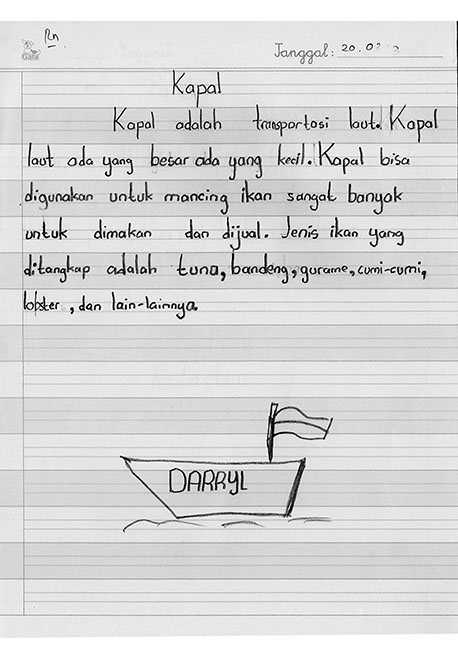 Rn
Tanggal: 20.0
Kapal
Kapal adalah transportasi laut. Kapal
laut ada yang besar ada yang kecil. Kapal bisa
digunakan untuk mancing ikan sangat banyak
untuk dimakan dan dijual. Jenis ikan yang
ditangkap adalah tuna, bandeng, gurame, cumi-cumi,
lobster, dan lain-lainnya.
DARRYL